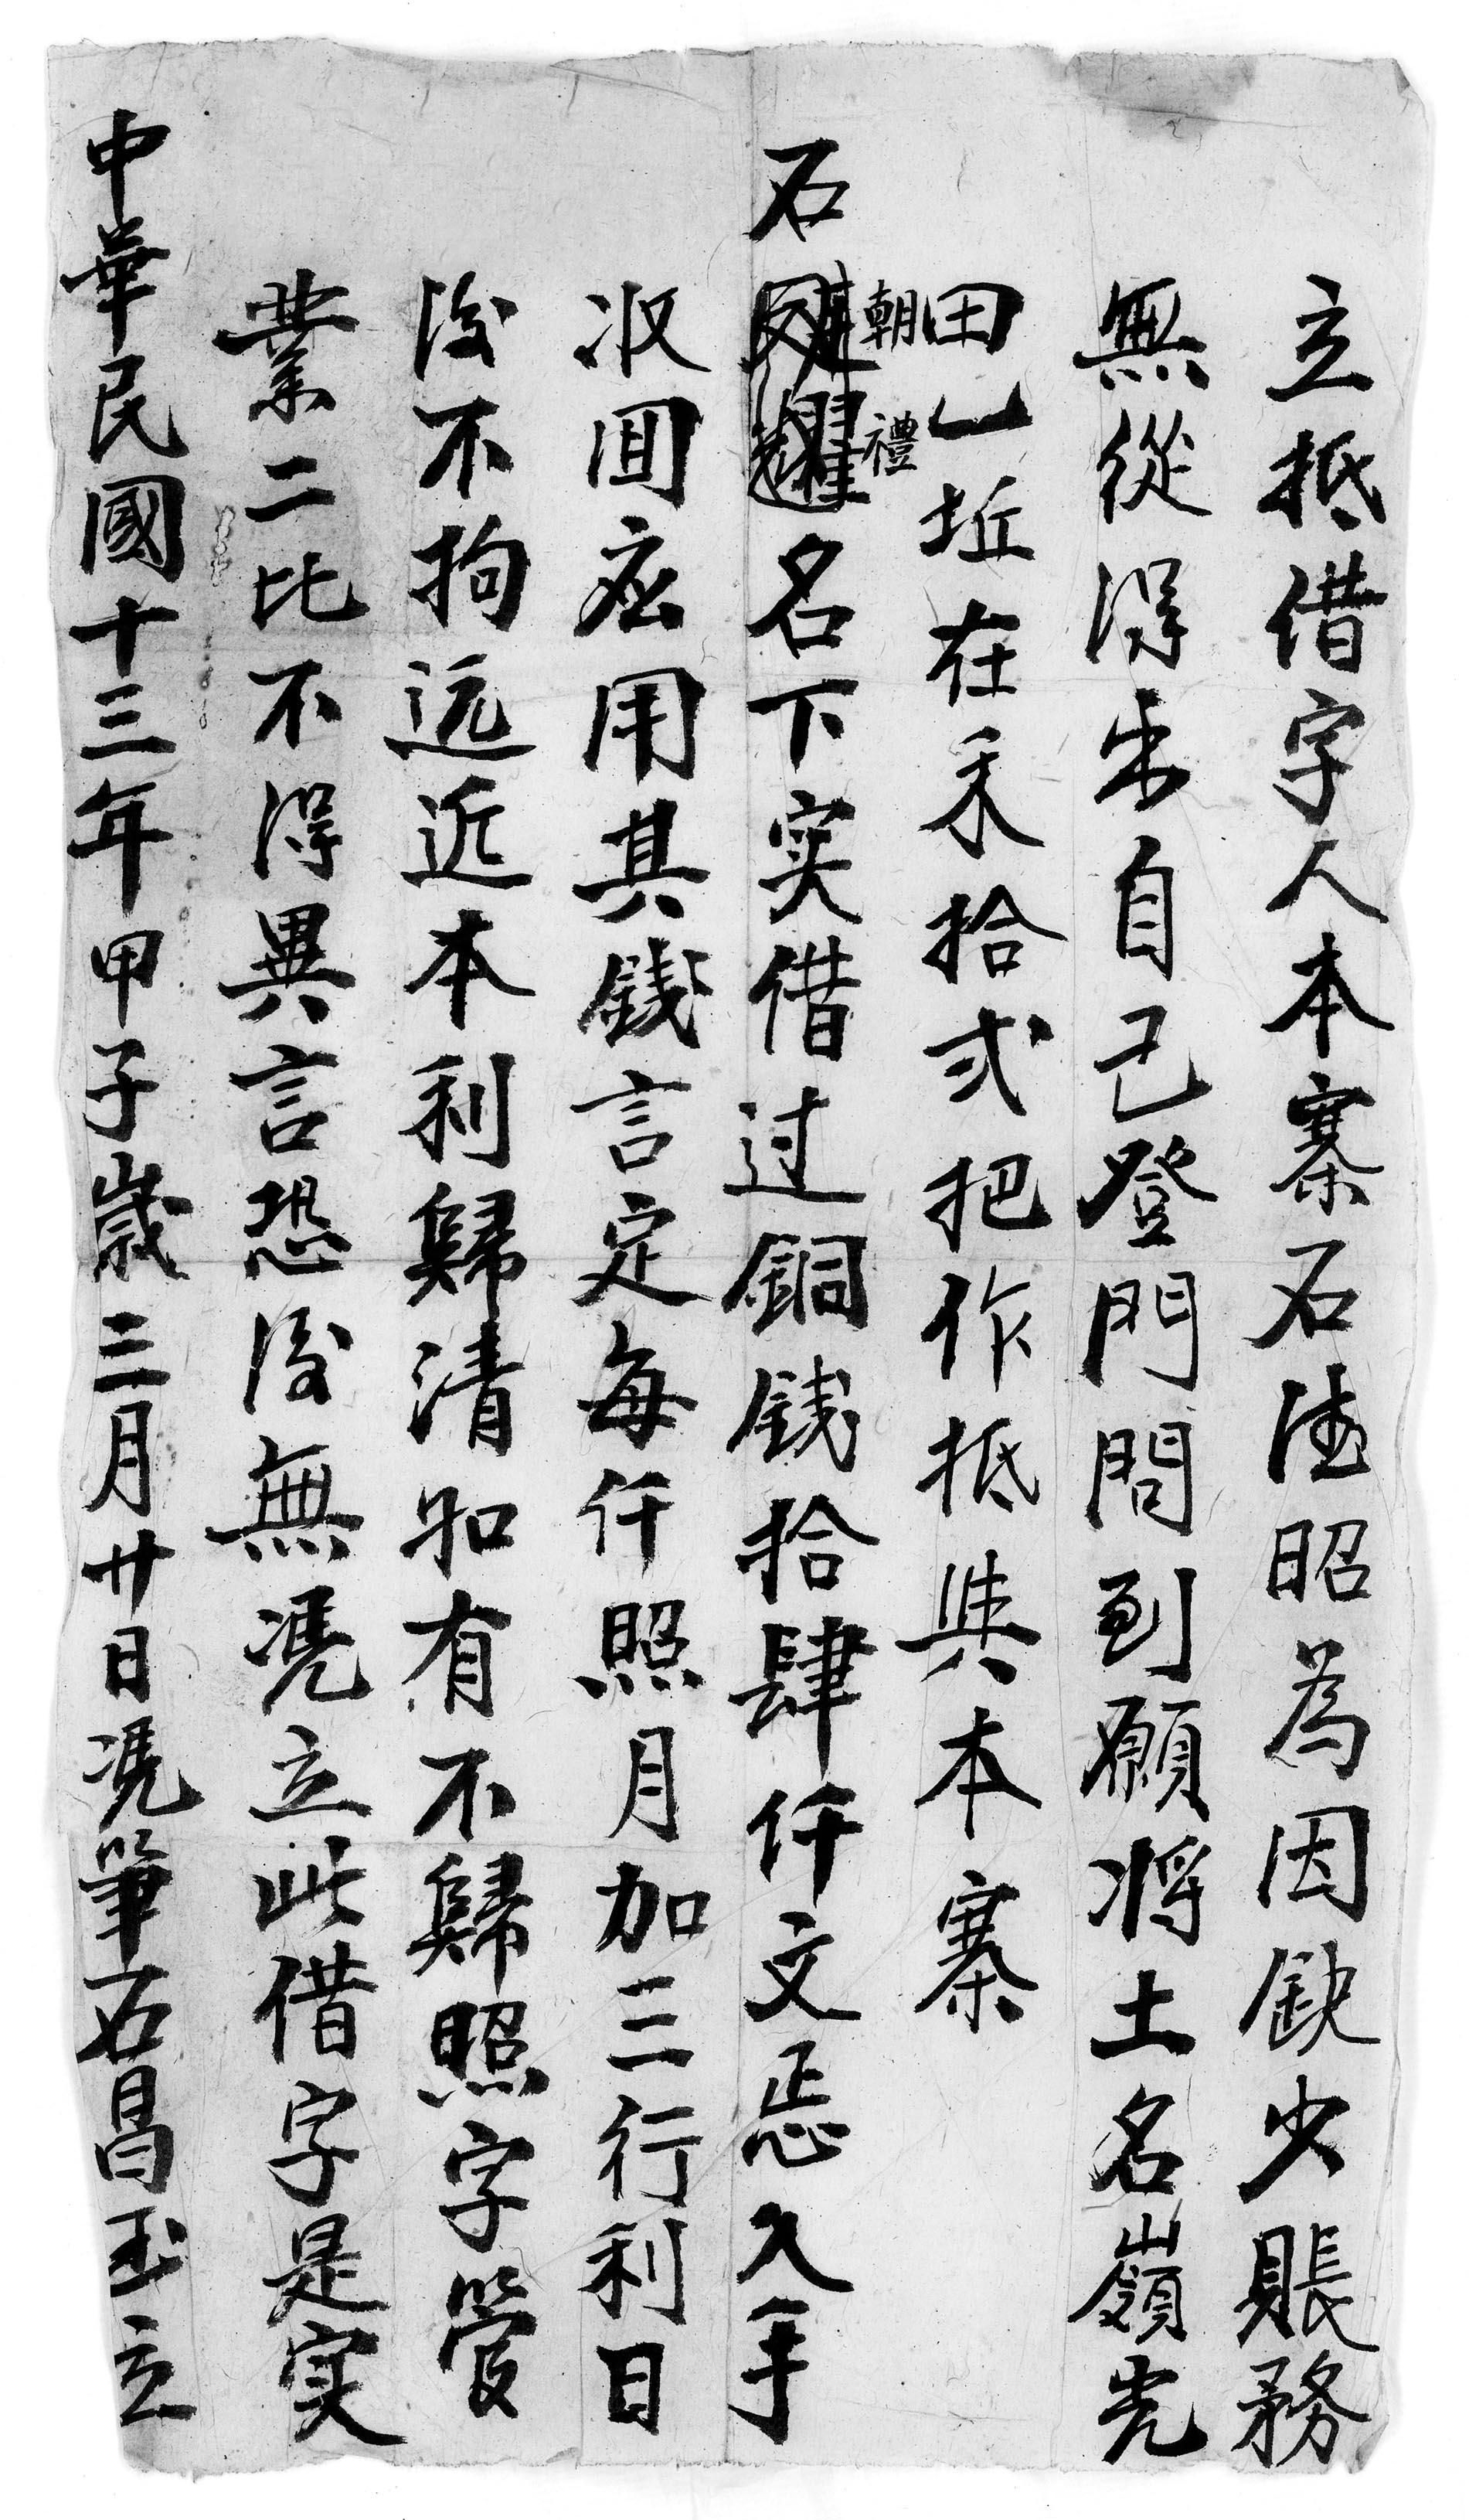 立抵借字人本寨石德昭為因缺少賬務
無從得出自己登門問到願将土名嶺光
田一坵在禾拾弍把作抵與本寨
石朝禮名下实借过銅銭拾肆仟文恁入手
收囬应用其銭言定每仟照月加三行利日
後不拘远近本利歸清如有不歸照字管
業二比不得異言恐後無凴立此借字是实
中華民國十三年甲子歲三月廿日凴筆石昌玉立